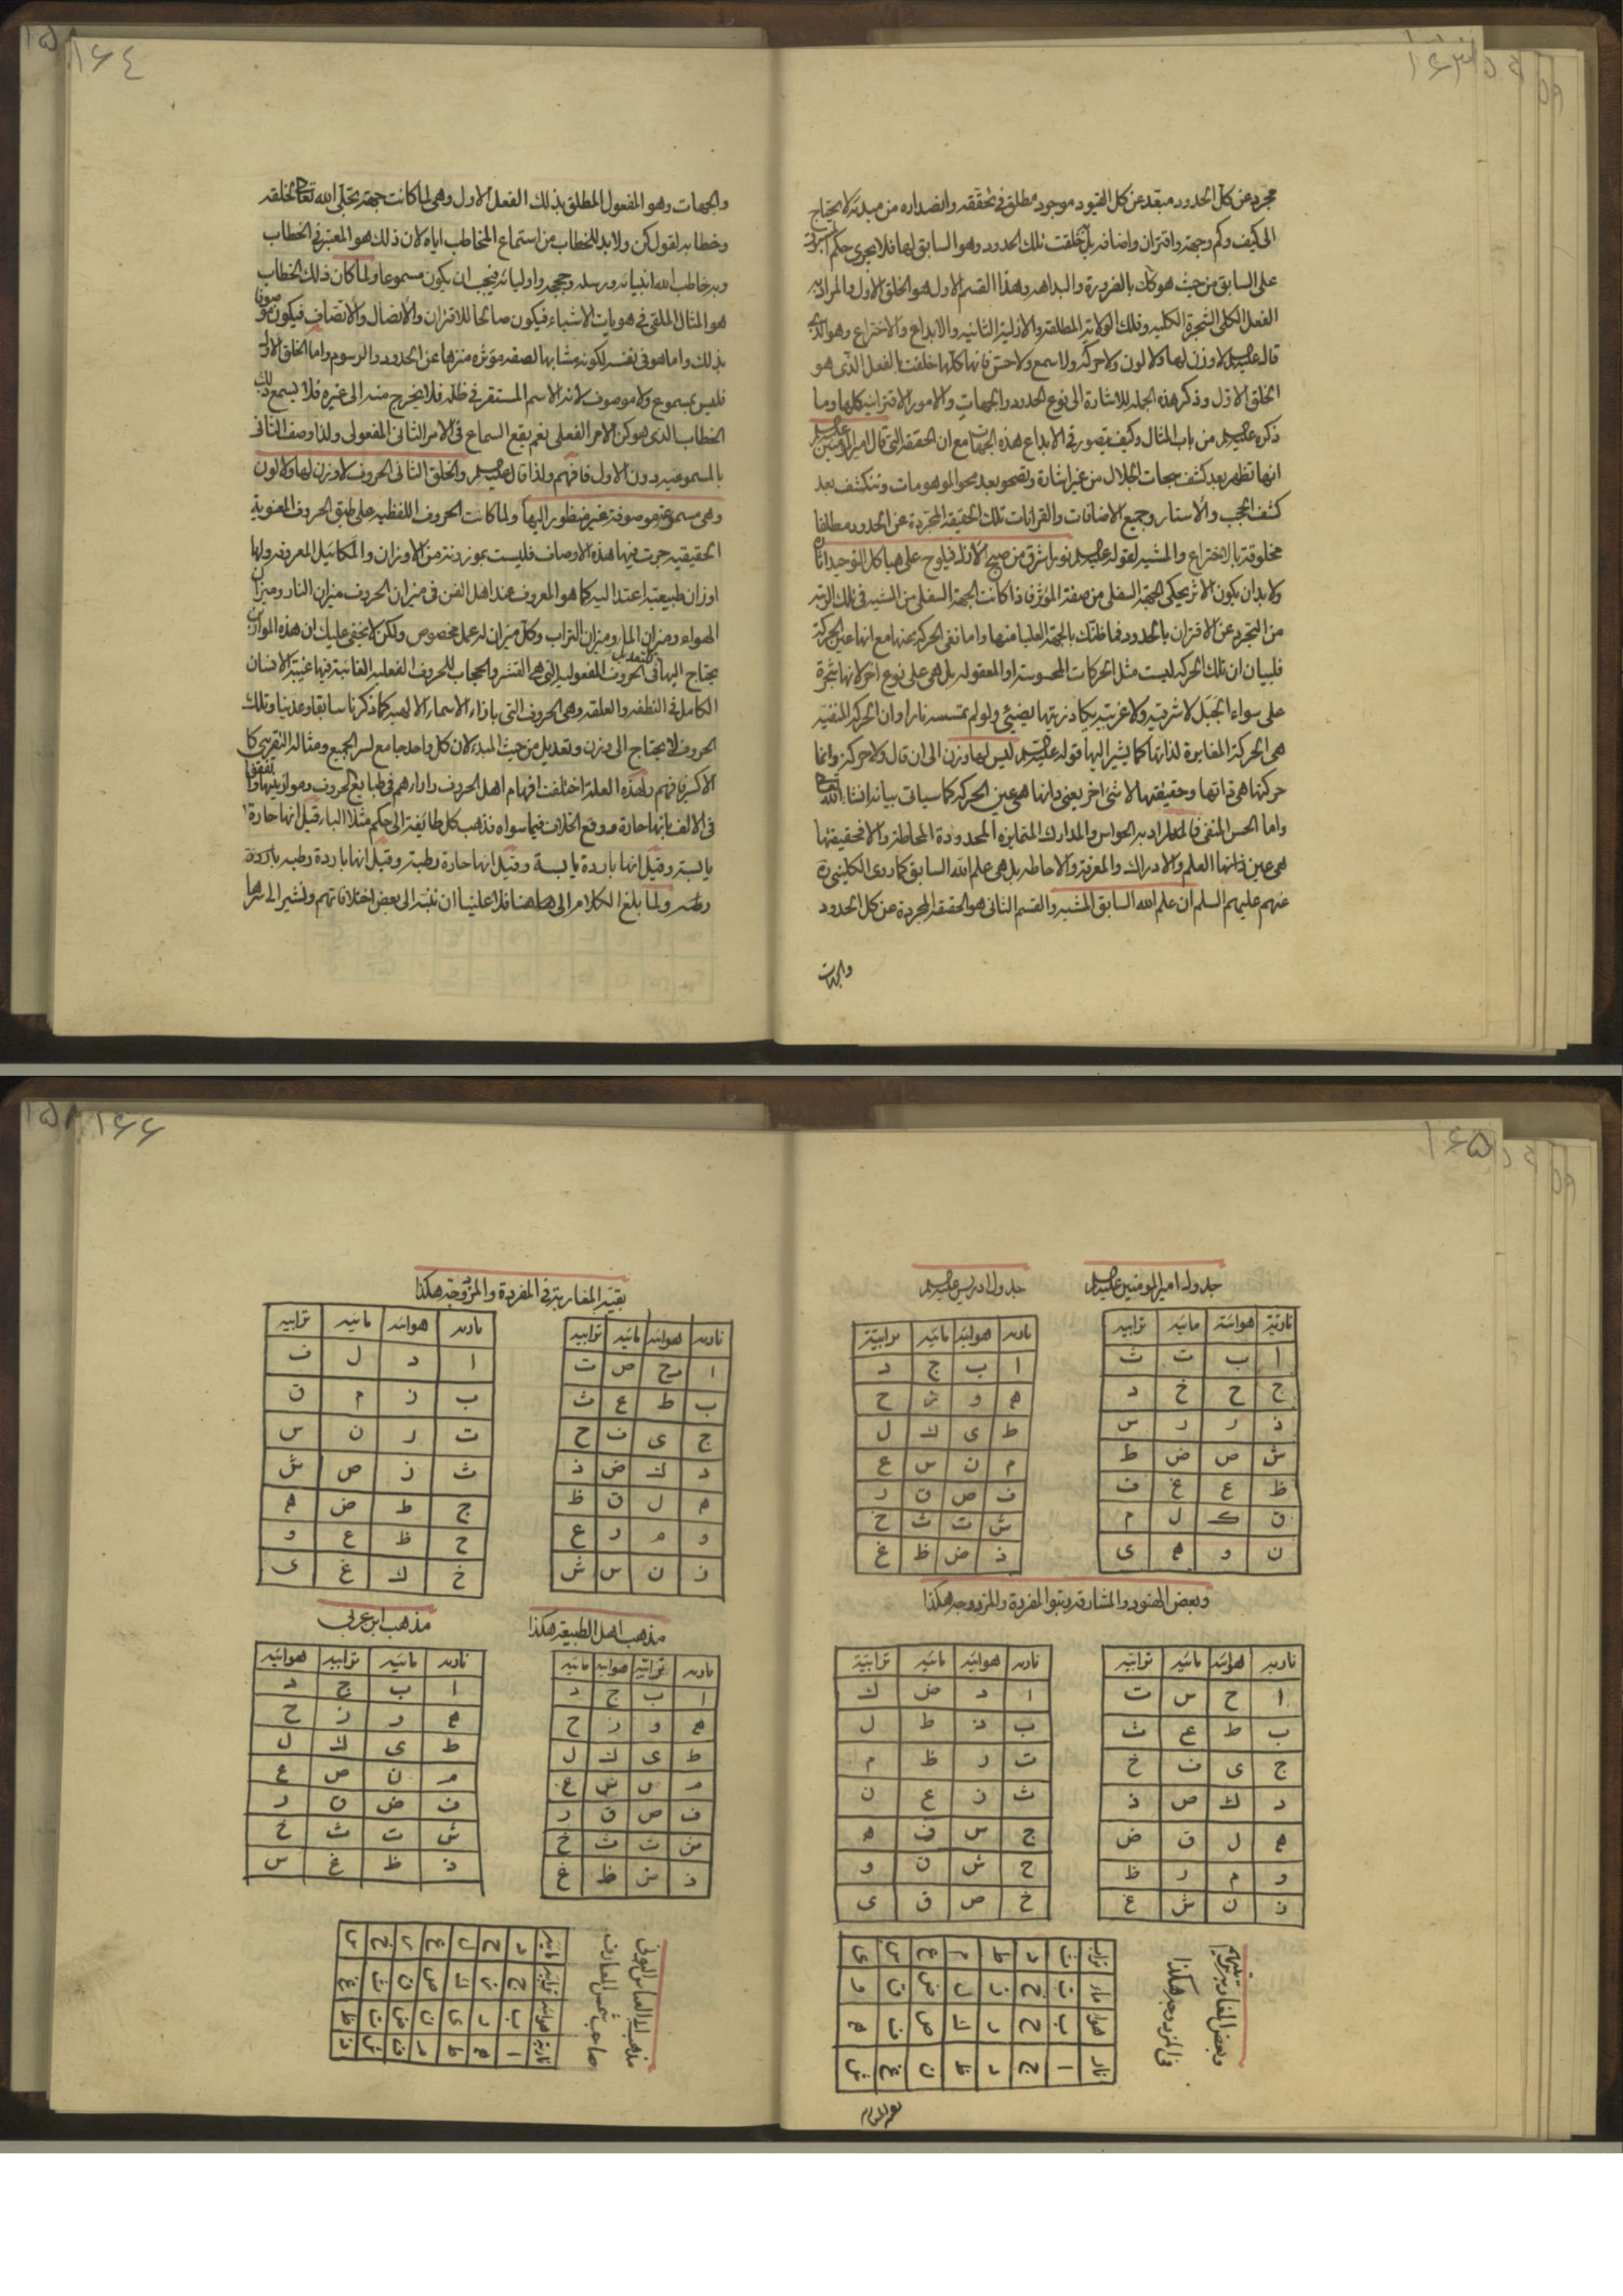 ١٦٣
مجرد عن كل الحدود مبعّد عن كل القيود موجود مطلق في تحققه وانصداره من مبدئه لا يحتاج
الى كيف وكم وجهة واقتران واضافة بل خلقت تلك الحدود وهو السابق لها فلا يجرى حكم
على السابق من حيث هو كك بالضرورة والبداهة وهذا القسم الاول هو الخلق الاول والمراد به
الفعل الكلى الشجرة الكلية وفلك الولاية المطلقة والازلية الثانية والابداع والاختراع وهو الذى
قال عليه السلم لا وزن لها ولا لون ولا حركة ولا سمع ولا حس فانها كلها خلقت بالفعل الذى هو
الخلق الاول وذكر هذه الجملة للاشارة الى نوع الحدود والجهات والامور الاقترانية كلها وما
ذكره عليه السلم من باب المثال وكيف يتصور في الابداع هذه الجهات مع ان الحقيقة التى قال امير المؤمنين عليه السلم
انها تظهر بعد كشف سبحات الجلال من غير اشارة وتصحو بعد محو الموهومات وتنكشف بعد
كشف الحجب والأستار وجميع الاضافات والقرانات تلك الحقيقة المجردة عن الحدود مطلقا
مخلوقة بالاختراع والمشية لقوله عليه السلم نور اشرق من صبح الازل فيلوح على هياكل التوحيد اثاره
ولا بد ان يكون الاثر يحكى الجهة السفلى من صفة المؤثر فاذا كانت الجهة السفلى من المشية في تلك الرتبة
من التجرد عن الاقتران بالحدود فما ظنك بالجهة العليا منها واما نفى الحركة عنها مع انها عين الحركة
فلبيان ان تلك الحركة ليست مثل الحركات المحسوسة او المعقولة بل هى على نوع اخر لانها شجرة
على سواء الجبل لا شرقية ولا غربية يكاد زيتها يضيئ ولو لم تمسسه نار وان الحركة المنفية
هى الحركة المغايرة لذاتها كما يشير اليها قوله عليه السلم ليس لها وزن الى ان قال ولا حركة وانما
حركتها هى ذاتها وحقيقتها لا شئ اخر يعنى انها هى عين الحركة كما سياتى بيانه انشاء الله
واما الحس المنفى فالمراد به الحواس والمدارك المتمايزة المحدودة المحاطة والا فحقيقتها
هى عين ذاتها العلم والادراك والمعرفة والاحاطة بل هى علم الله السابق كما روى الكلينى
عنهم عليهم السلم ان علم الله السابق المشية والقسم الثانى هو الحقيقة المجردة عن كل الحدود
والجهات
١٦٤
والجهات وهو المفعول المطلق بذلك الفعل الاول وهى لما كانت جهة تجلى الله تعالى لخلقه
وخطابه لقول كن ولا بد للخطاب من استماع المخاطب اياه لان ذلك هو المعتبر في الخطاب
وبه خاطب الله انبيائه ورسله وحججه واوليائه فيجب ان يكون مسموعا ولما كان ذلك الخطاب
هو المثال الملقى في هويات الاشياء فيكون صالحا للاقتران والأتصال والأتصاف فيكون موصوفا
بذلك واما هو في نفسه لكونه مشابها لصفة مؤثره منزها عن الحدود والرسوم واما الخلق الاول
فليس بمسموع ولا موصوف لانه الاسم المستقر في ظله فلا يخرج منه الى غيره فلا يسمع ذلك
الخطاب الذى هو كن الامر الفعلى نعم يقع السماع في الامر الثانى المفعولى ولذا وصف الثانى
بالمسموعية دون الاول فافهم ولذا قال عليه السلم والخلق الثانى الحروف لا وزن لها ولا لون
وهى مسموعة موصوفة غير منظور اليها ولما كانت الحروف اللفظية على طبق الحروف المعنوية
الحقيقية جرت فيها هذه الاوصاف فليست بموزونة من الاوزان والمكاييل المعروفة ولها
اوزان طبيعية اعتدالية كما هو المعروف عند اهل الفن في ميزان الحروف ميزان النار وميزان
الهواء وميزان الماء وميزان التراب وكل ميزان له عمل مخصوص ولكن لا يخفى عليك ان هذه الموازين
يحتاج اليها في تعديل الحروف المفعولية التى هى القشر والحجاب للحروف الفعلية الغائبة فيها غيبة الانسان
الكامل في النطفة والعلقة وهى الحروف التى بازاء الاسماء الالهية كما ذكرنا سابقا وعدّينا وتلك
الحروف لا يحتاج الى وزن وتعديل من حيث المبدء لان كل واحد جامع لسر الجميع ومثاله التقريبى كا
الاكسير فافهم ولهذه العلة اختلفت افهام اهل الحروف واراءهم في طبايع الحروف وموازينها واتفقوا
في الالف بانها حارة ووقع الخلاف فيما سواه فذهب كل طائفة الى حكم مثلا الباء قيل انها حارة
يابسة وقيل انها باردة يابسة وقيل انها حارة رطبة وقيل انها باردة رطبة
ولما بلغ الكلام الى هيهنا فلا علينا ان ننبّه الى بعض اختلافاتهم ونشير الى سرها
١٦٥
جدول امير المومنين عليه السلم
نارية هوائية مائية ترابية
ا ب ت ث
ج ح خ د
ذ ر ز س
ش ص ض ط
ظ ع غ ف
ق ك ل م
ن و ه ى
جدول ادريس عليه السلم
نارية هوائية مائية ترابية
ا ب ج د
ه و ز ح
ط ى ك ل
م ن س ع
ف ص ق ر
ش ت ث خ
ذ ض ظ غ
وبعض الهنود والمشارقه رتبوا المفردة والمزدوجه هكذا
نارية هوائية مائية ترابية
ا ح س ت
ب ط ع ث
ج ى ف خ
د ك ص ذ
ه ل ق ض
و م ر ظ
ز ن ش غ
نارية هوائية مائية ترابية
ا د ض ك
ب ذ ط ل
ت ر ظ م
ث ز ع ن
ج س ف ه
ح ش ق و
خ ص ق ى
وبعض المغاربة
في المزدوجه هكذا
نار هوا ماء تراب
بقية المغاربة
١٦٦
بقية المغاربة في المفردة والمزدوجة هكذا
نارية هوائية مائية ترابية
ا ح ص ت
ب ط ع ث
ج ى ف خ
د ك ض ذ
ه ل ق ظ
و م ر غ
ز ن س ش
نارية هوائية مائية ترابية
ا د ل ف
ب ذ م ق
ت ر ن س
ث ز ص ش
ج ط ض ه
ح ظ ع و
خ ك غ ى
مذهب اهل الطبيعة هكذا
نارية ترابية هوائية مائية
ا ب ج د
ه و ز ح
ط ى ك ل
م ن س ع
ف ص ق ر
ش ت ث خ
ذ ض ظ غ
مذهب ابن عربى
نارية مائية ترابية هوائية
ا ب ج د
ه و ز ح
ط ى ك ل
م ن ص ع
ف ض ق ر
ش ت ث خ
ذ ظ غ س
مذهب ابى العباس البونى
صاحب شمس المعارف
نارية هوائية ترابية مائية
ا ب ج د
ه و ز ح
ط ى ك ل